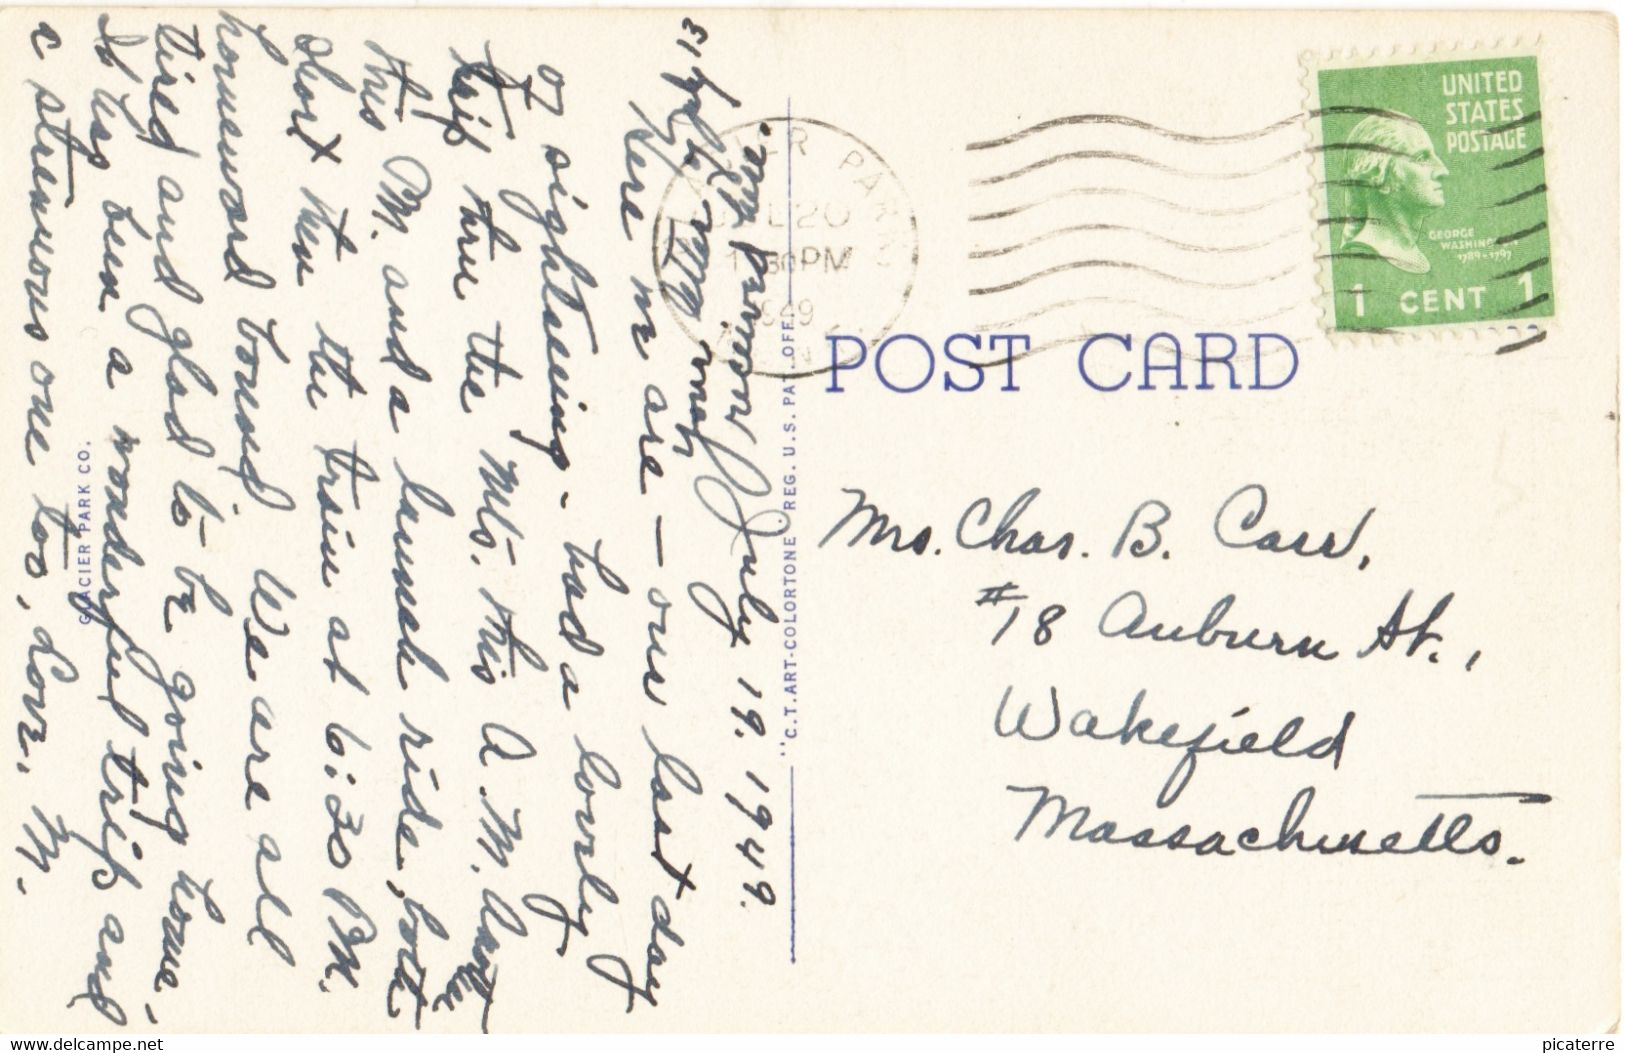 July 19. 1949.
Here we are — our last day
of sightseeing - had a lovely
trip thru the Mts. this A.M.
this M. and a launch ride, boat
short then the train at 6:30 P.M.
homeward bound. We are all
tired and glad to be going home.
It has been a wonderful trip and
a strenuous one too, Love, M.
GLACIER PARK CO.
"C.T. ART-COLORTONE REG. U.S. PAT. OFF.
PARK
JUL 20
30 PM
1949
UNITED
STATES
POSTAGE
GEORGE
WASHINGTON
1789-1797
1 CENT 1
POST CARD
Mrs. Chas. B. Carr,
#18 Auburn St.,
Wakefield
Massachusetts.
www.delcampe.net
picaterre